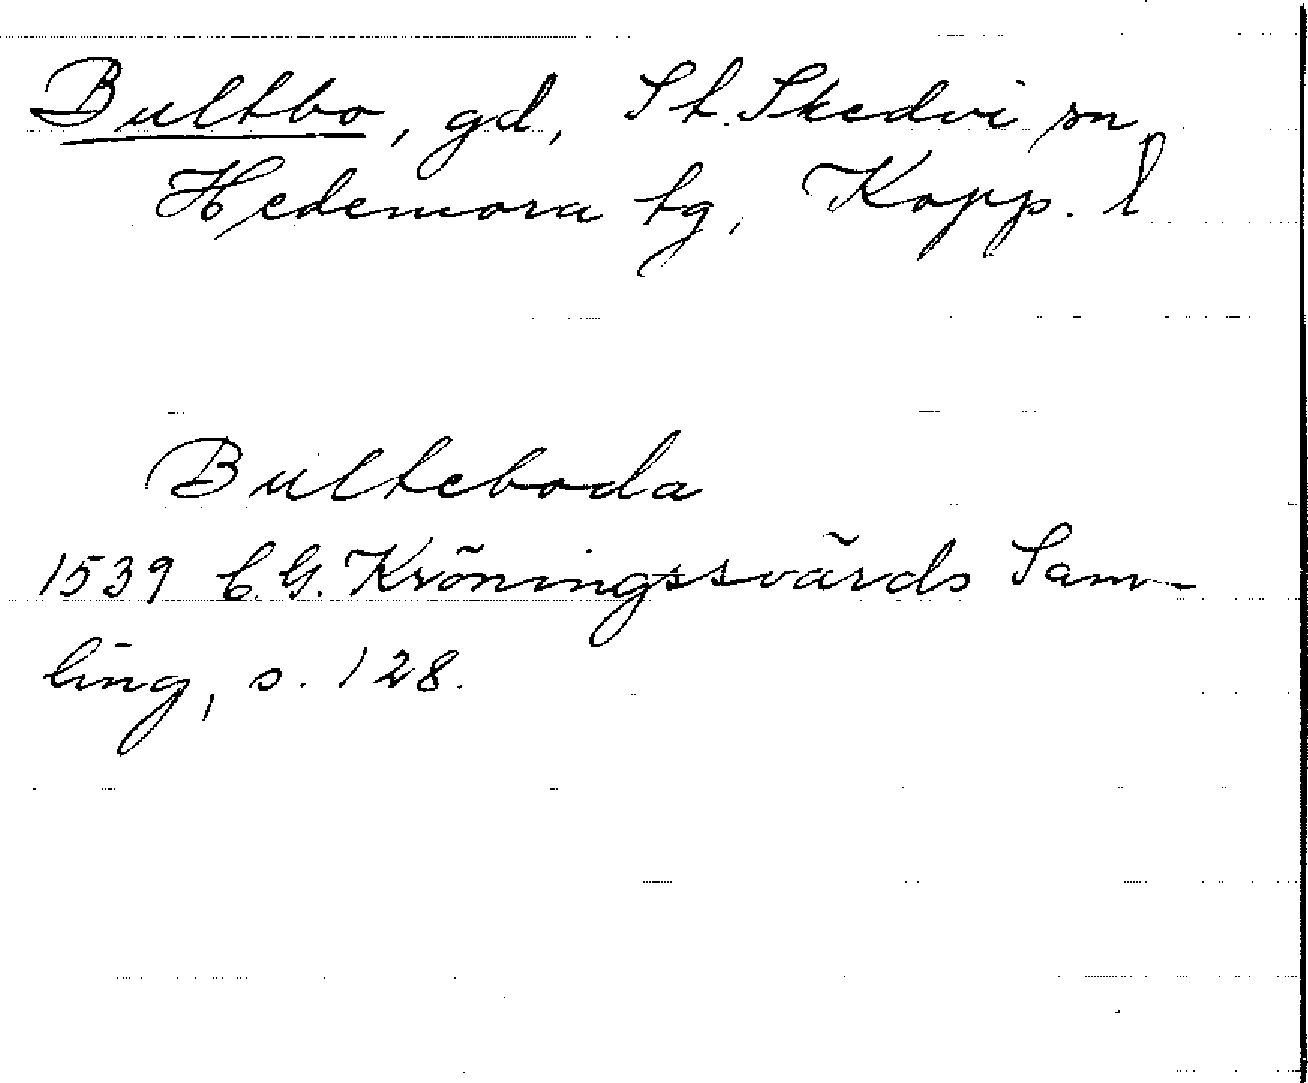 Bultbo, gd, St. Skedvi sn
Hedemora tg, Kopp. l
Bulteboda
1539 C. G. Kröningssvärds Sam-
ling, s. 128.